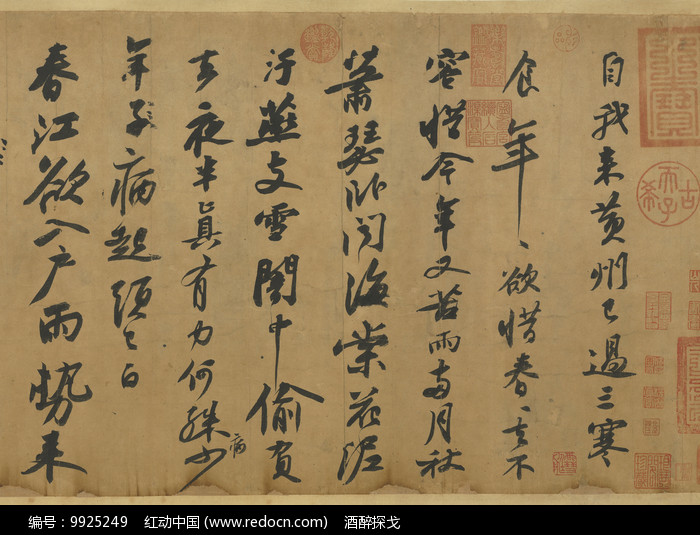 自我来黄州已過三寒
食年〻欲惜春〻去不
容惜今年又苦雨兩月秋
蕭瑟卧聞海棠花泥
汙燕支雪闇中偷負
去夜半真有力何殊少
病
年子病起頭已白
春江欲入户雨勢来
编号：9925249 红动中国 (www.redocn.com) 酒醉探戈